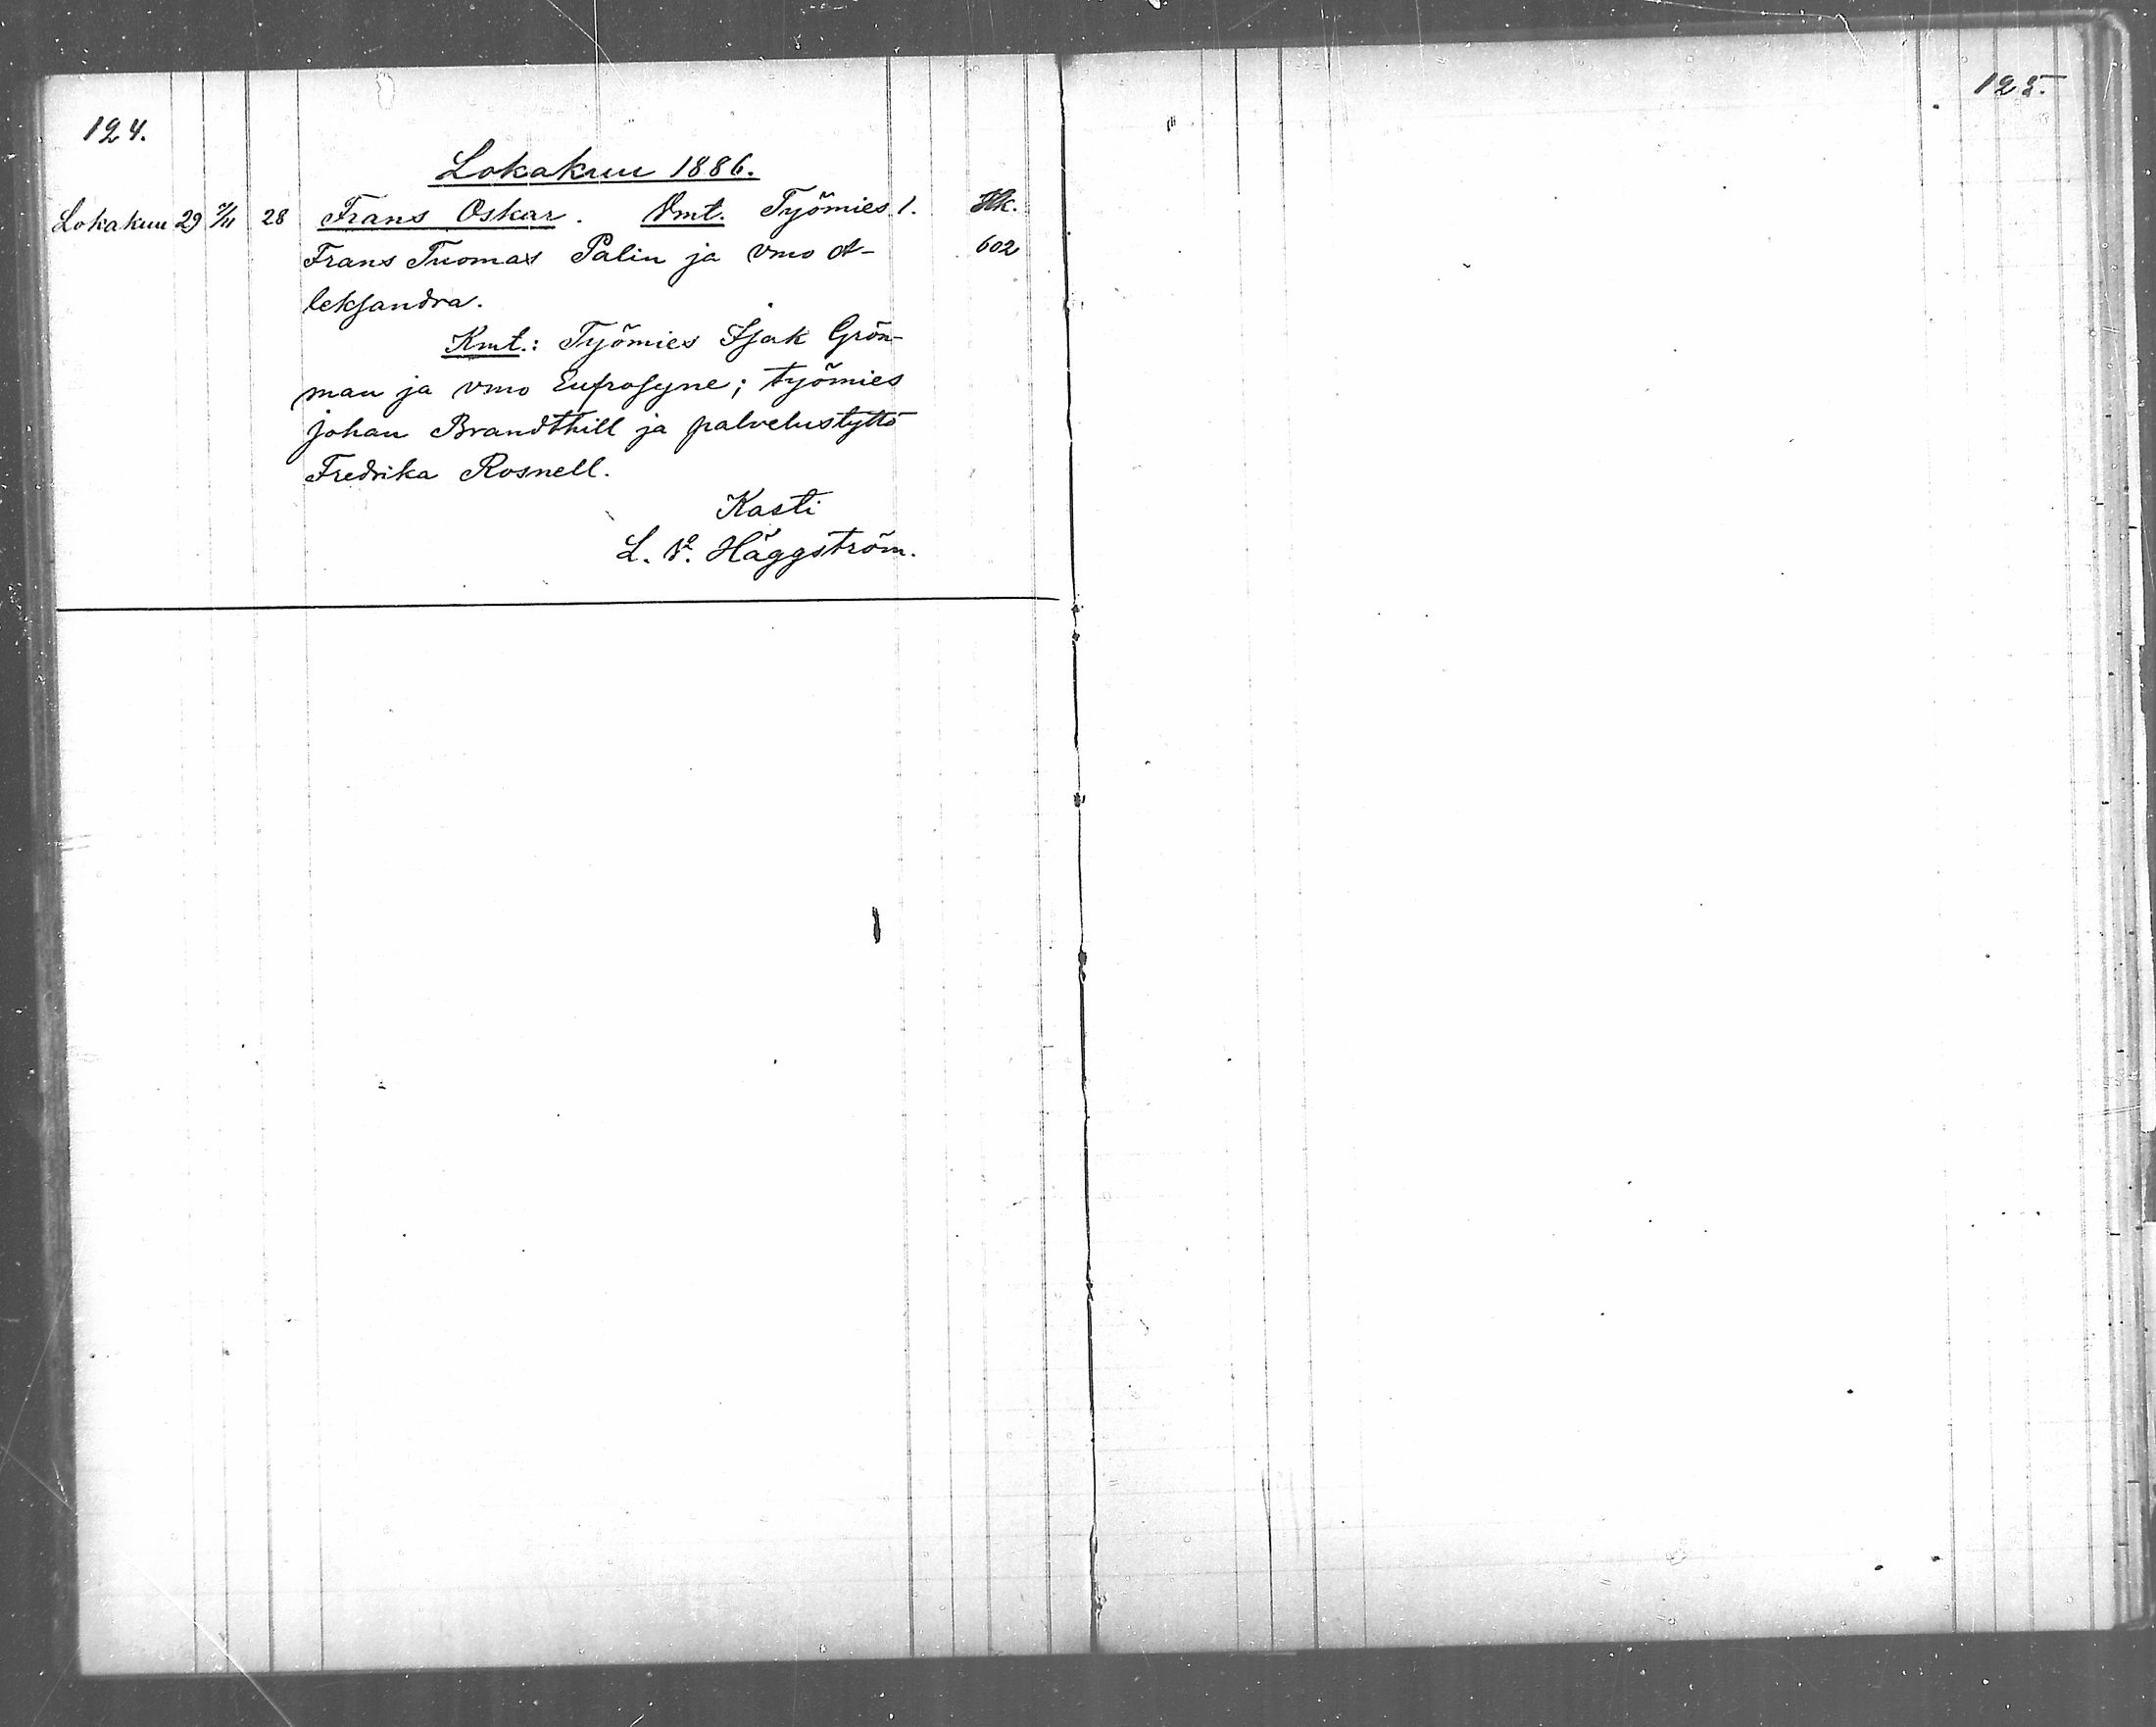 124.
125.
Lokakuu 1886.
Lokakuu 29 28 Frans Oskar. Vmt. Työmies 1. Hk.
Frans Tuomas Palin ja vmo A- 602
leksandra.
Kmt.: Työmies Isak Grön-
man ja vmo Eufrosyne; työmies
Johan Brandthill ja palvelustyttö
Fredrika Rosnell.
Kasti
L. V. Häggström.